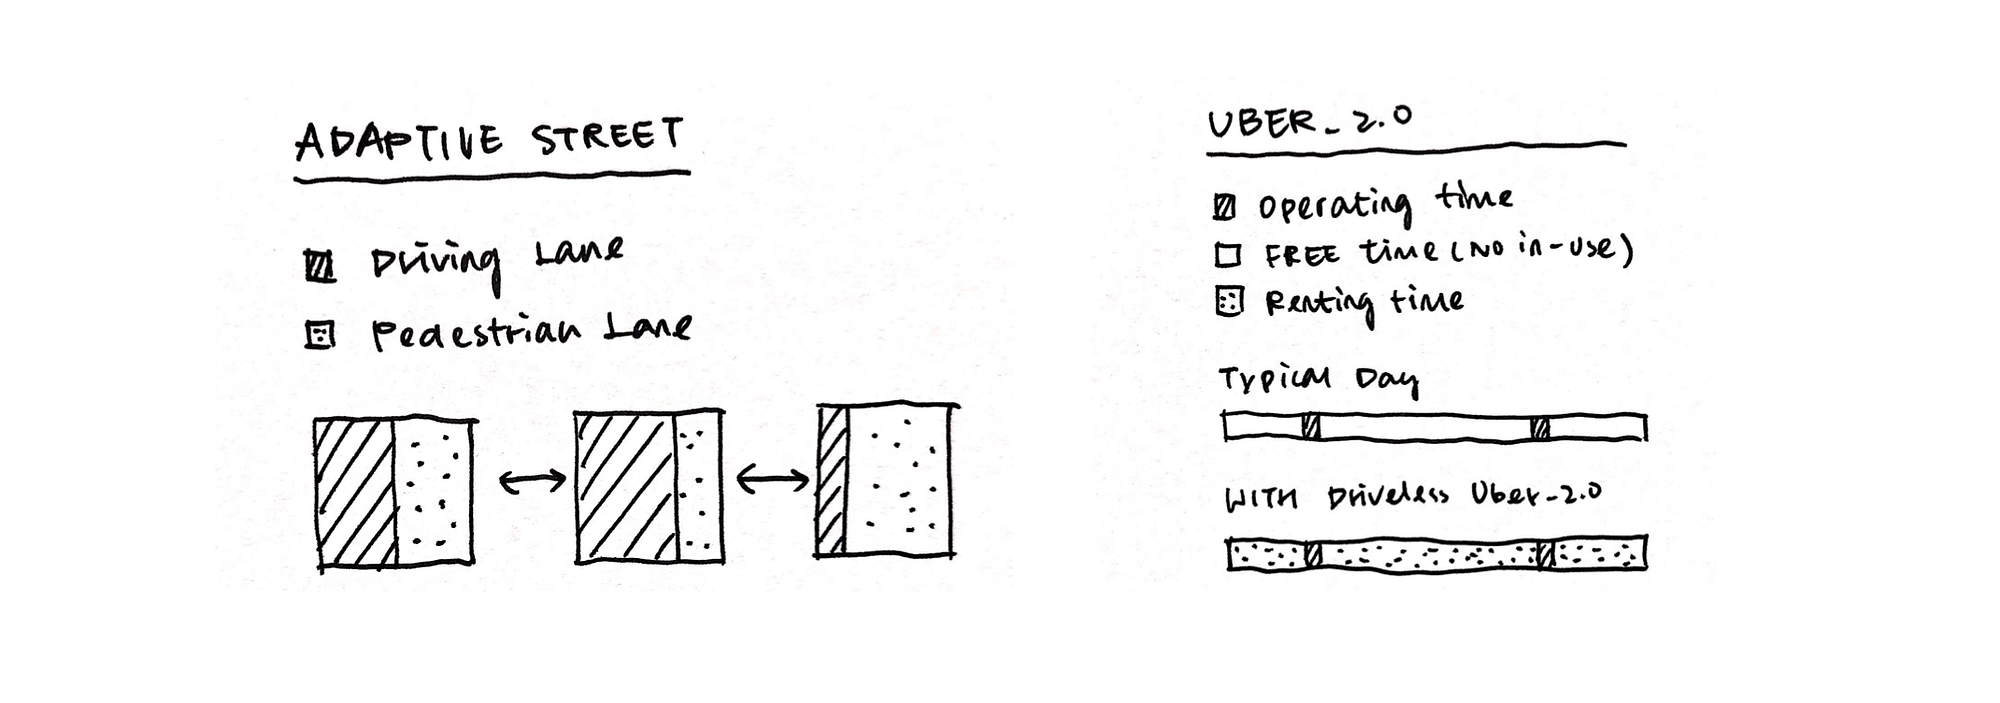 ADAPTIVE STREET
Driving Lane
Pedestrian Lane
UBER_2.0
Operating time
FREE time (NO in-use)
Renting time
Typical Day
WITH Driveless Uber_2.0